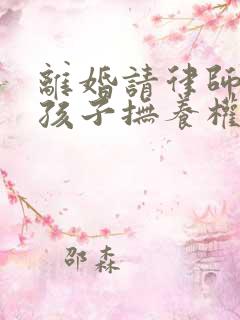 離婚請律師
孩子撫養權
邵森